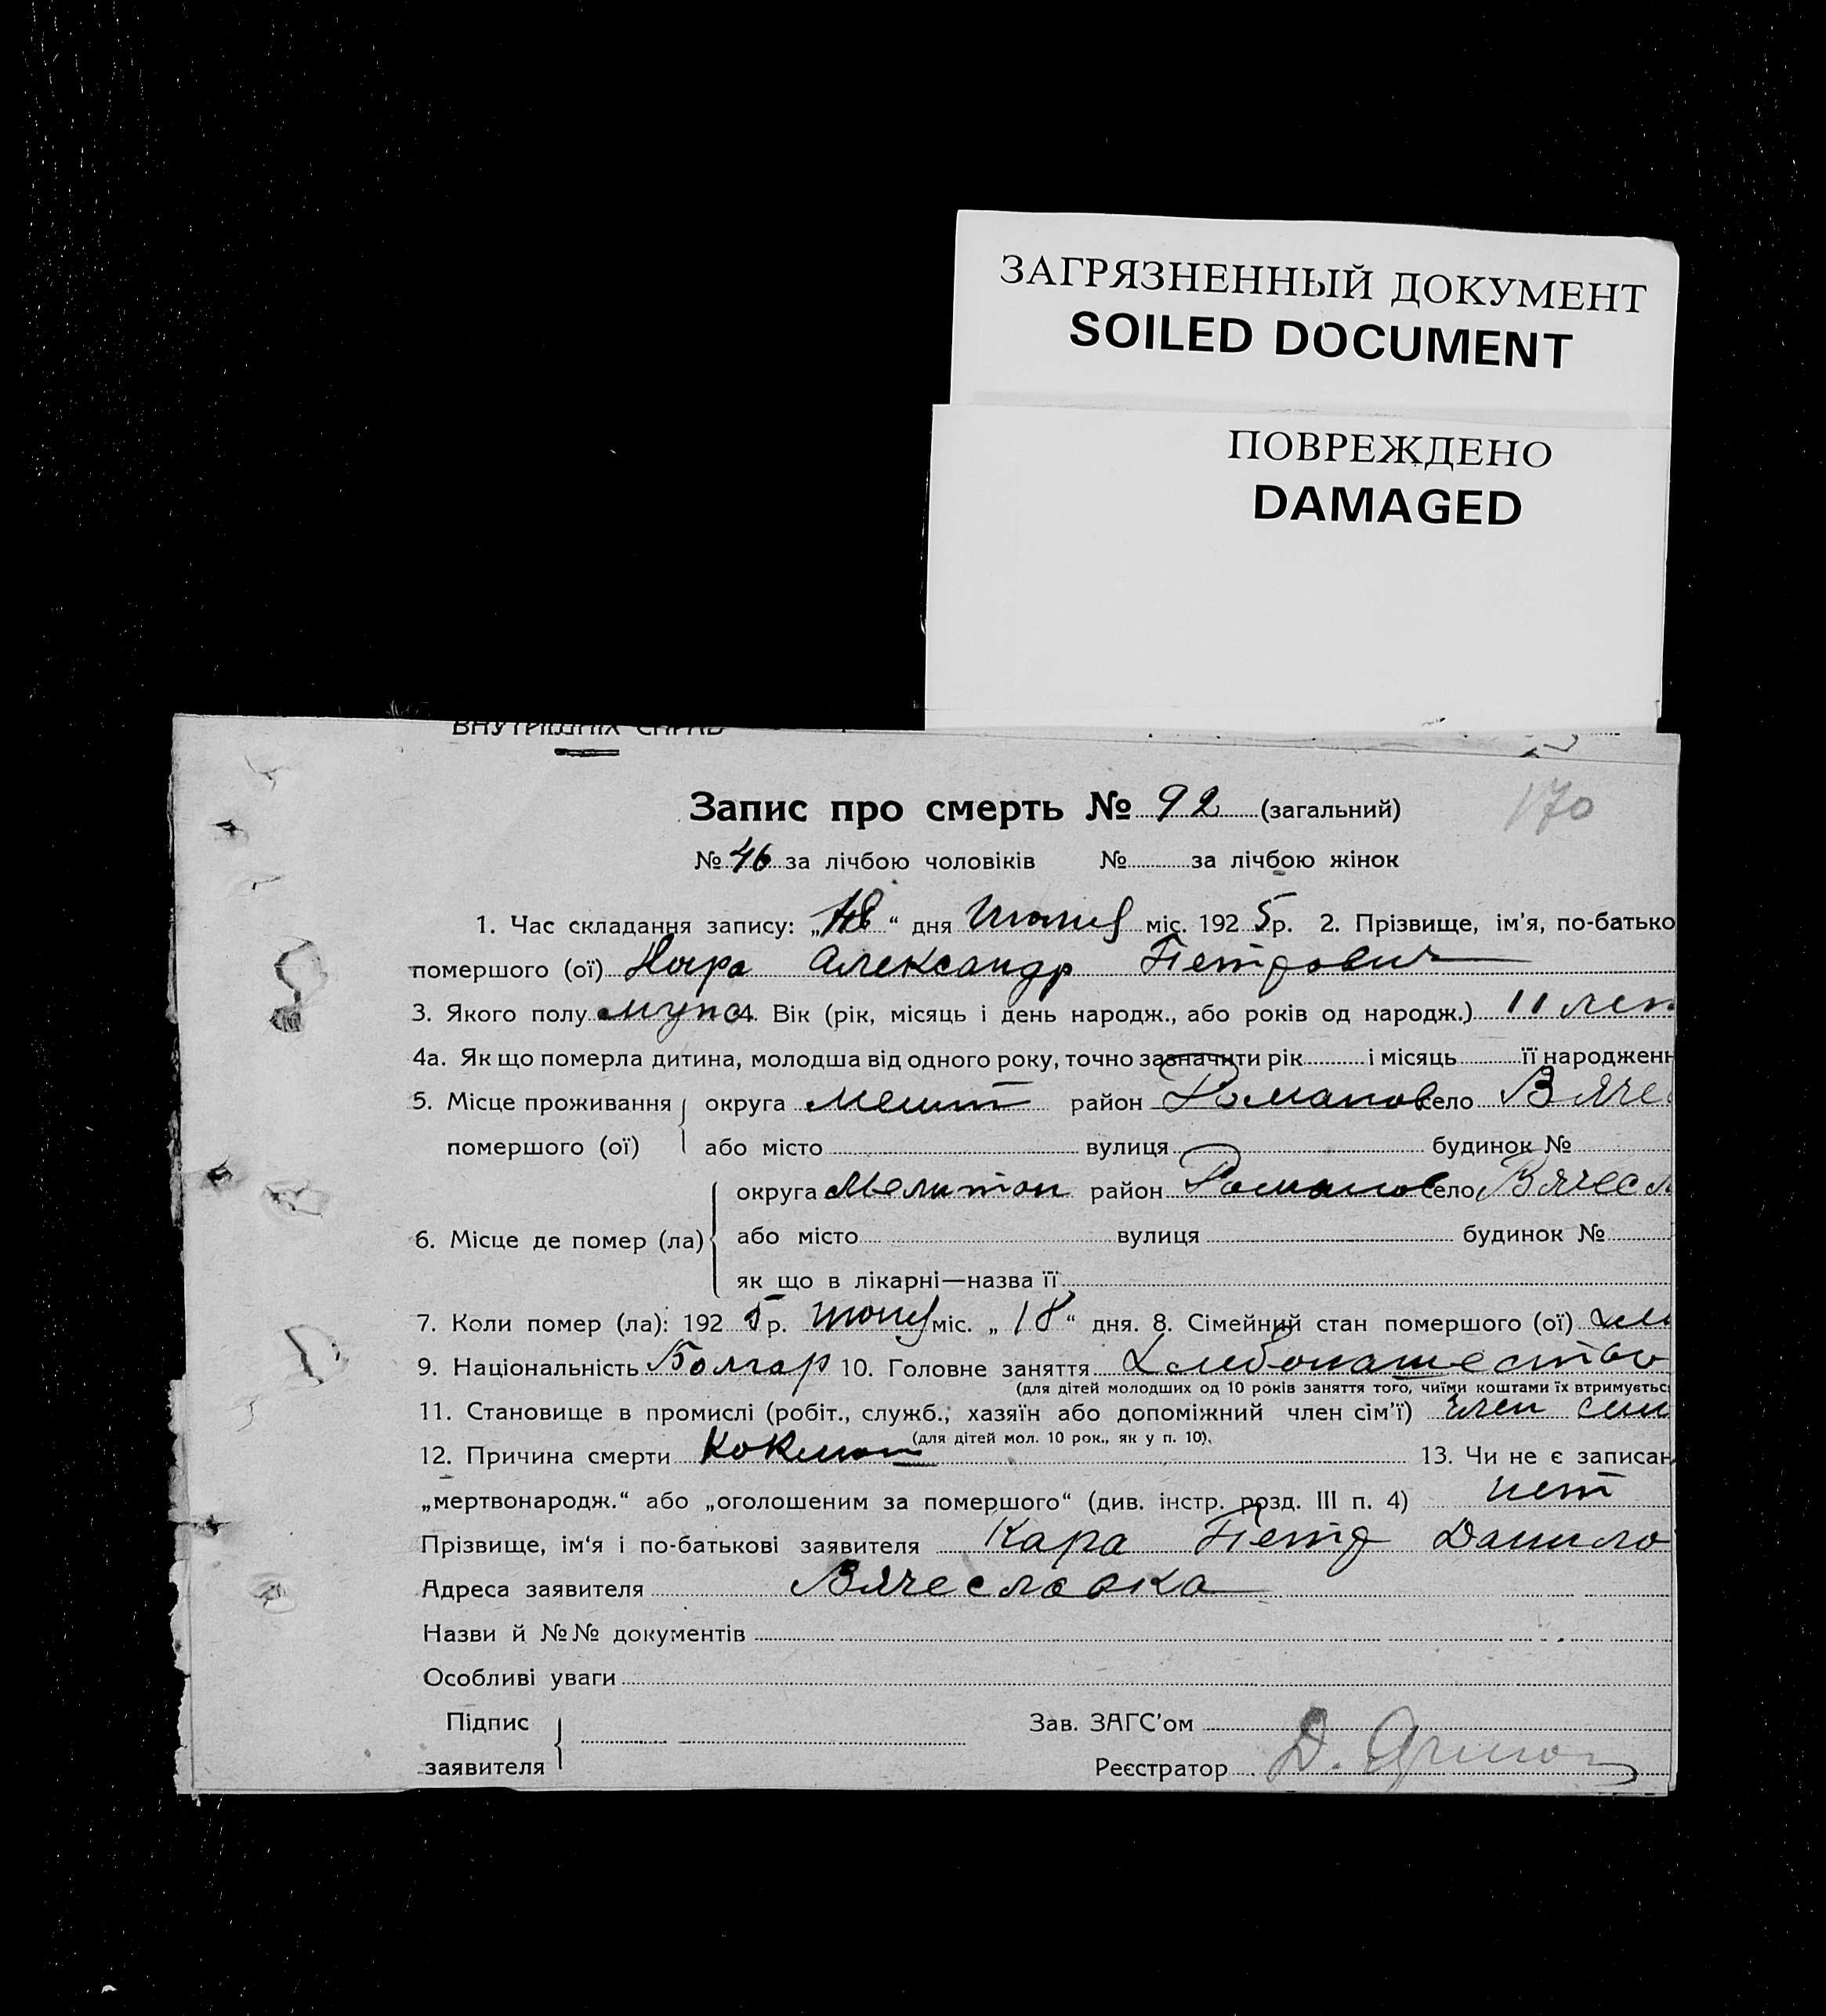 ЗАГРЯЗНЕННЫЙ ДОКУМЕНТ
SOILED DOCUMENT
ПОВРЕЖДЕНО
DAMAGED
ВНУТРІШНІХ СПРАВ
Запис про смерть № 92 (загальний) 170
№ 46 за лічбою чоловіків № за лічбою жінок
1. Час складання запису: „18“ дня міс. 1925р. 2. Прізвище, ім’я, по-батько
помершого (ої) Кара Александр Петрович
3. Якого полу 4. Вік (рік, місяць і день народж., або років од народж.) 11 лет
4а. Як що померла дитина, молодша від одного року, точно зазначити рік і місяць її народженн
5. Місце проживання округа Мелит район Романов село Вячес
помершого (ої) або місто вулиця будинок №
округа Мелитоп район Романов село Вячесл
6. Місце де помер (ла) або місто вулиця будинок №
як що в лікарні—назва її
7. Коли помер (ла): 1925р. міс. „18“ дня. 8. Сімейний стан помершого (ої)
9. Національність Болгар 10. Головне заняття Хлебопашество
(для дітей молодших од 10 років заняття того, чиїми коштами їх втримуєтьс
11. Становище в промислі (робіт., служб., хазяїн або допоміжний член сім’ї) член сем
(для дітей мол. 10 рок., як у п. 10).
12. Причина смерти Коклюш 13. Чи не є записан
„мертвонародж.“ або „оголошеним за помершого“ (див. інстр. розд. III п. 4) нет
Прізвище, ім‘я і по-батькові заявителя Кара Петр Данило
Адреса заявителя Вячеславка
Назви й №№ документів
Особливі уваги
Підпис Зав. ЗАГС’ом
заявителя Реєстратор Д.